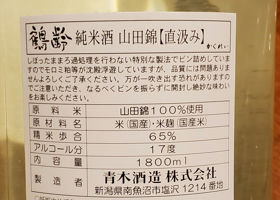 鶴齢 純米酒 山田錦【直汲み】
かくれい
しぼったままろ過処理を行わない特別な製法でビン詰めしていま
すのでモロミ粕等が沈殿浮遊していますが、品質には問題ありま
万が一吹き出す恐れがありますの
でご注意いただき、なるべくビンを振らずに開封し絶妙な味わい
をお楽しみください。
原料米 山田錦100%使用
原材料 米(国産)・米麹(国産米)
精米歩合 65%
アルコール分 17度
内容量 1800ml
製造者 青木酒造 株式会社
新潟県南魚沼市塩沢 1214 番地